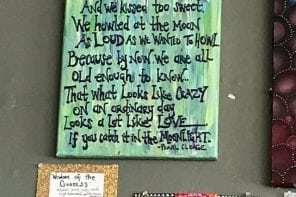 And we kissed too sweet.
We howled at the Moon
As LOUD As we wanted to HOWL
Because by Now we are all
Old enough to know...
That what Looks Like CRAZY
on an ordinary day
Looks a Lot Like LOVE
If you catch it in the MOONLIGHT.
-PEARL CLEAGE
Wisdom of the
Goddess